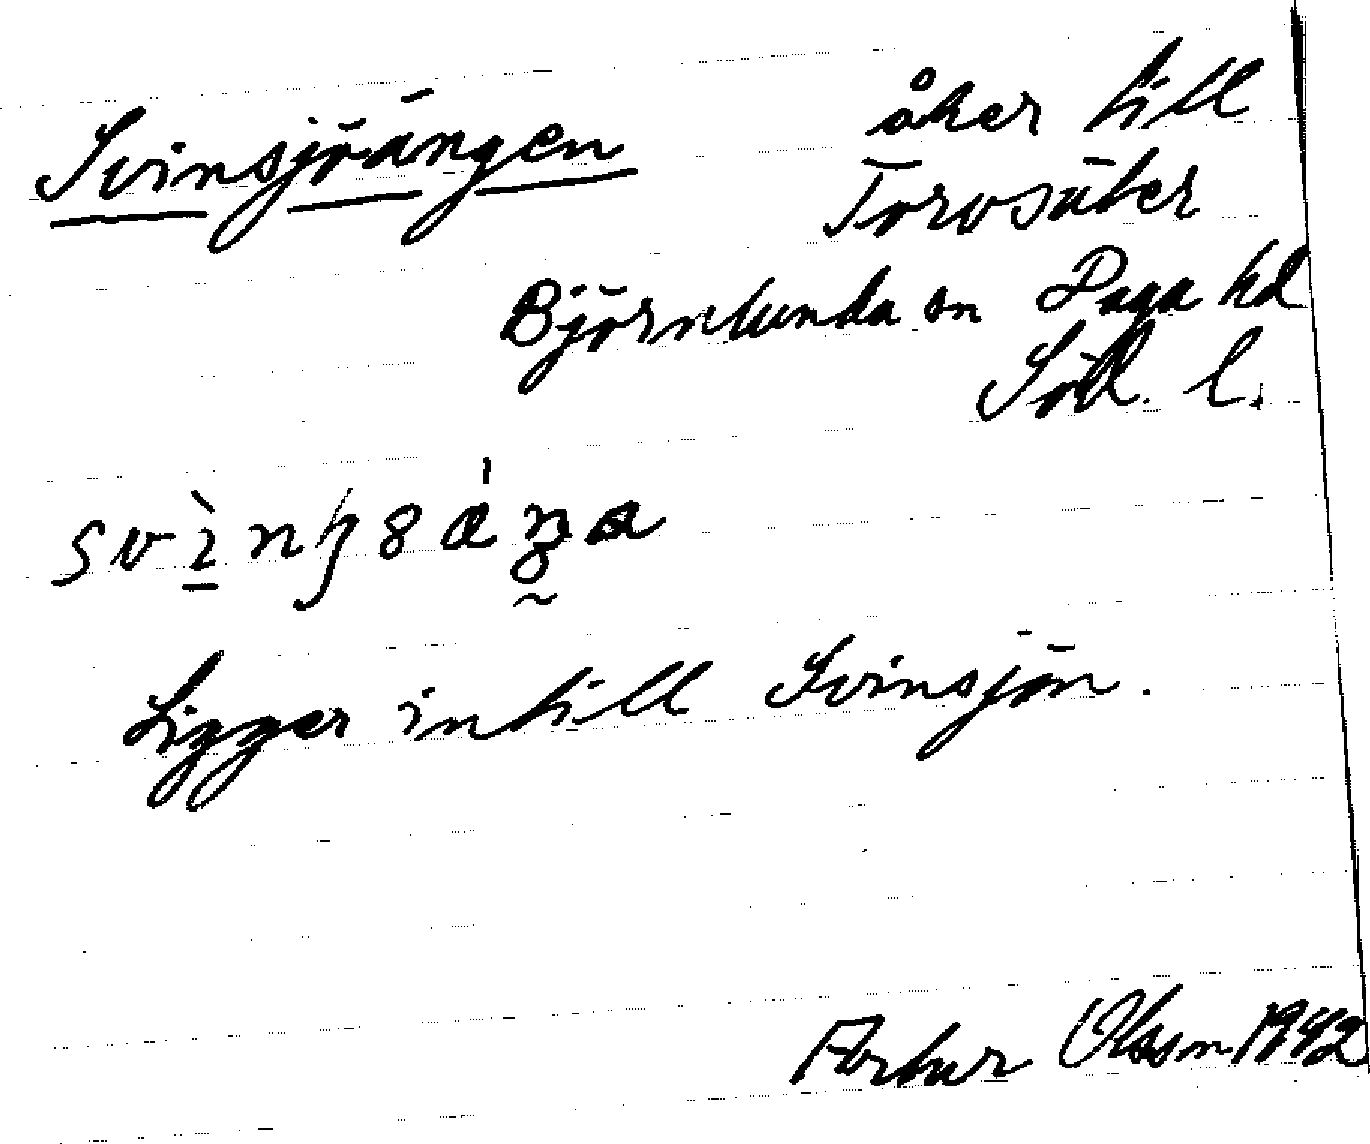 Svinsjöängen
åker till
Torvsäter
Björnlunda sn Daga hd
Söd. l.
Ligger intill Svinsjön.
Arthur Olsson 1942